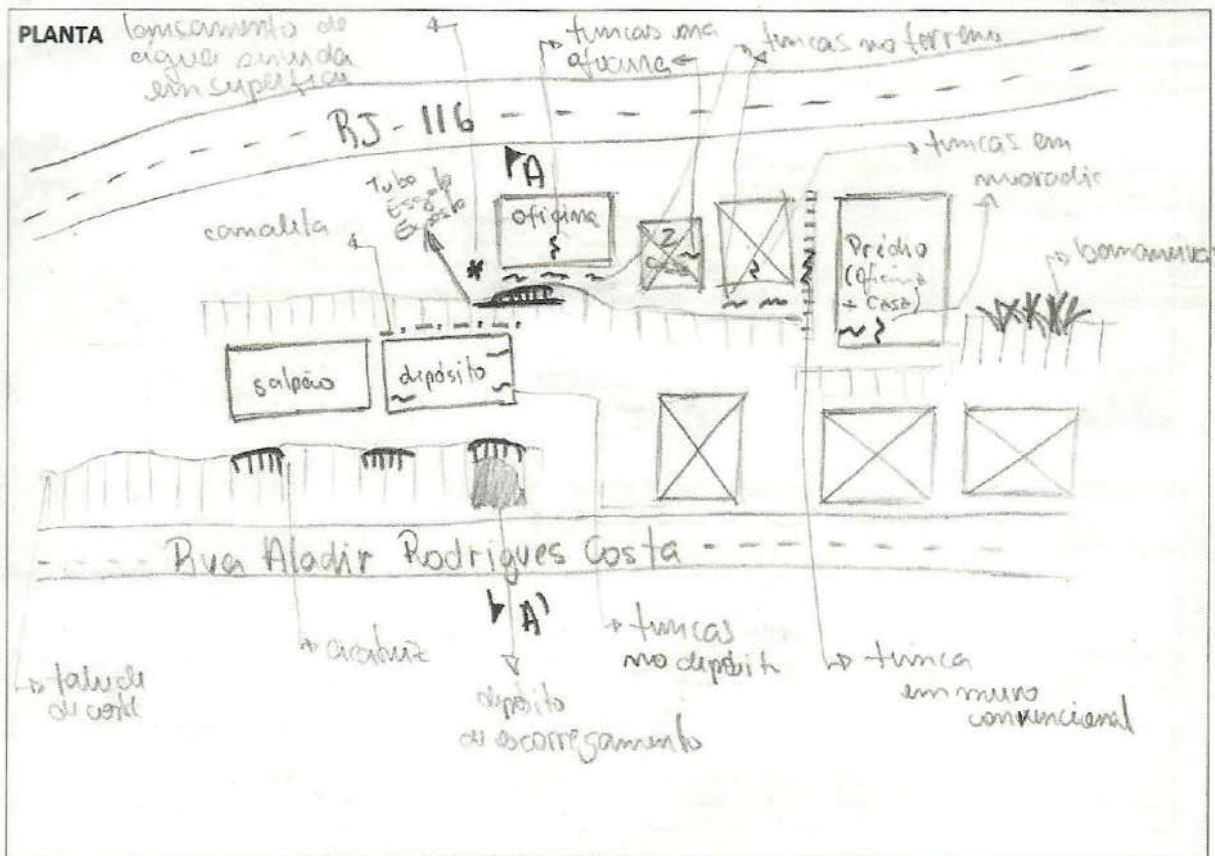 PLANTA
lançamento de
água servida
em superfície
trincas na
oficina
trincas no terreno
RJ-116
trincas em
moradia
A
Tubo
Esgoto
Exposto
canaleta
oficina
2
Casas
Prédio
(Oficina
+ Casa)
bananeiras
galpão
depósito
Rua Aladir Rodrigues Costa
A'
talude
de corte
cicatriz
depósito
de escorregamento
trincas
no depósito
trinca
em muro
convencional